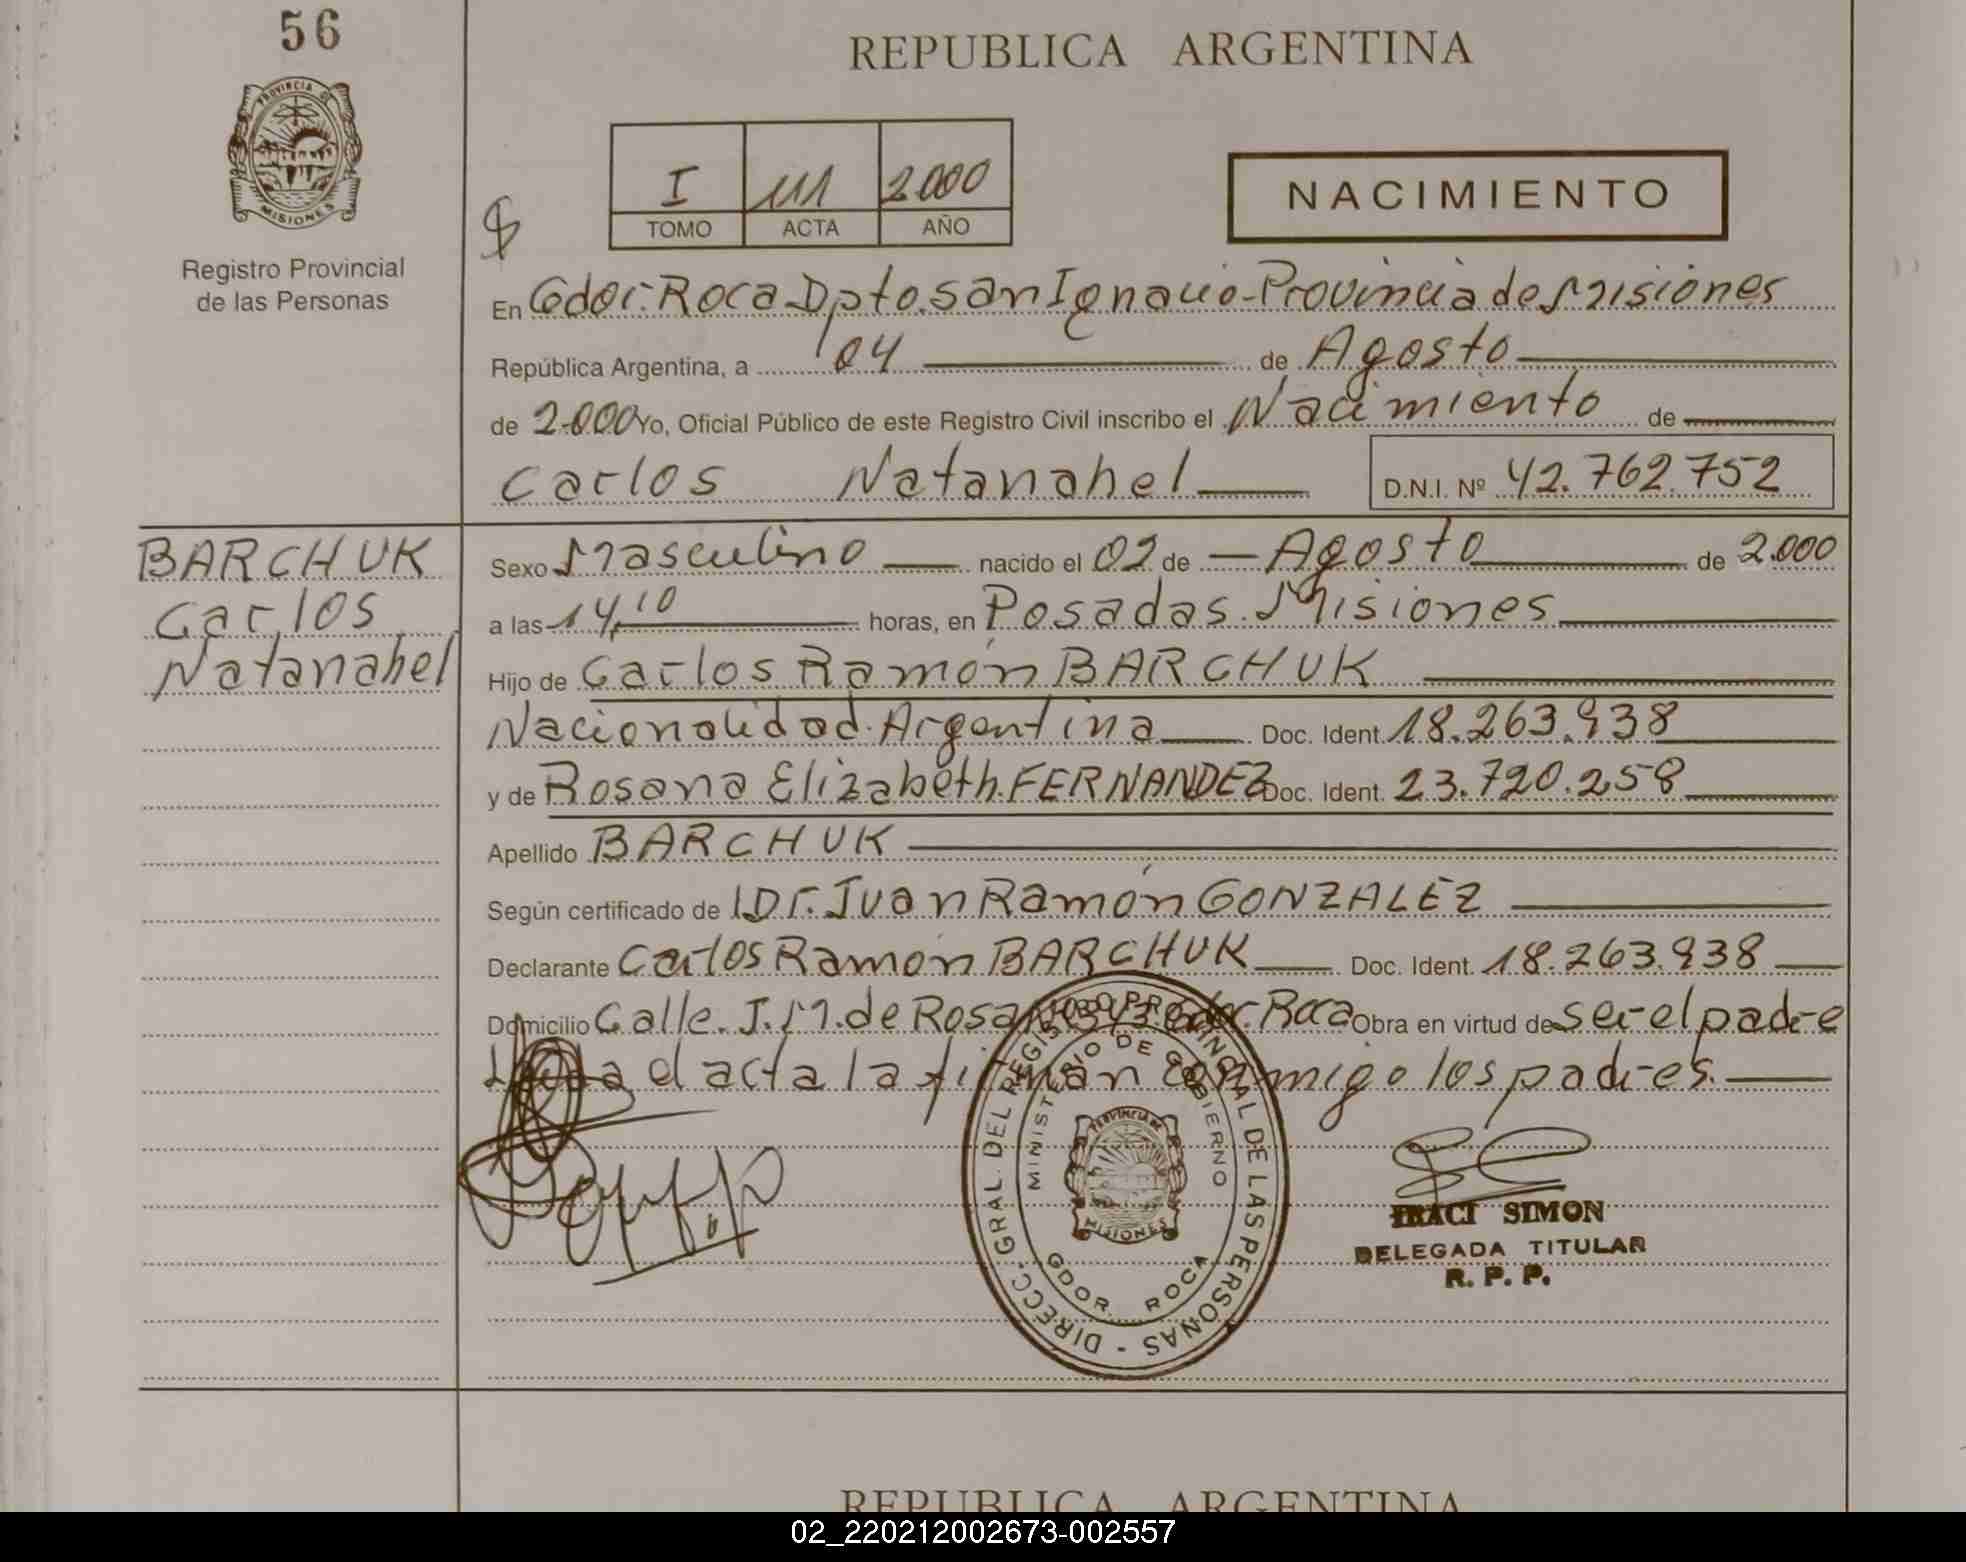 56
REPUBLICA ARGENTINA
PROVINCIA DE
MISIONES
Registro Provincial
de las Personas
I 111 2000
TOMO ACTA AÑO
NACIMIENTO
En Gdor. Roca Dpto. san Ignacio - Provincia de Misiones
República Argentina, a 04 de Agosto
de 2.000 Yo, Oficial Público de este Registro Civil inscribo el Nacimiento de
Carlos Natanahel D.N.I. Nº 42.762.752
BARCHUK
Carlos
Natanahel
Sexo Masculino nacido el 02 de Agosto de 2.000
a las 14,10 horas, en Posadas. Misiones
Hijo de Carlos Ramón BARCHUK
Nacionalidad Argentina Doc. Ident. 18.263.938
y de Rosana Elizabeth FERNANDEZ Doc. Ident. 23.720.258
Apellido BARCHUK
Según certificado de l Dr. Juan Ramón GONZALEZ
Declarante Carlos Ramón BARCHUK Doc. Ident. 18.263.938
Domicilio Calle. J.M. de Rosas Gdor. Roca Obra en virtud de ser el padre
Leída el acta la firman conmigo los padres.
DIRECC. GRAL. DEL REGISTRO PROVINCIAL DE LAS PERSONAS -
MINISTERIO DE GOBIERNO
PROVINCIA DE
MISIONES
GDOR. ROCA
IRACI SIMON
DELEGADA TITULAR
R. P. P.
REPUBLICA ARGENTINA
02_220212002673-002557